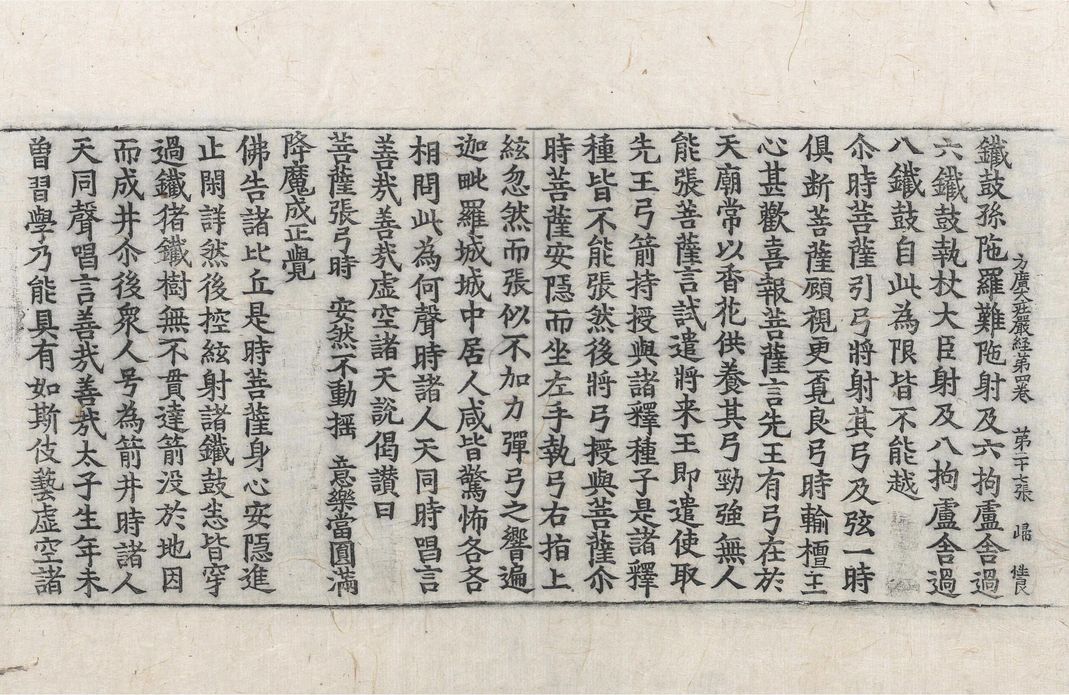 方廣大莊嚴経第四卷 第二十七張
鐵鼓孫陁羅難陁射及六拘盧舍過
六鐵鼓執杖大臣射及八拘盧舍過
八鐵鼓自此為限皆不能越
尒時菩薩引弓將射其弓及弦一時
俱斷菩薩顧視更覔良弓時輸檀王
心甚歡喜報菩薩言先王有弓在於
天廟常以香花供養其弓勁強無人
能張菩薩言試遣將来王即遣使取
先王弓箭持授與諸釋種子是諸釋
種皆不能張然後將弓授與菩薩尒
時菩薩安隱而坐左手執弓右指上
絃忽然而張似不加力彈弓之響遍
迦毗羅城城中居人咸皆驚怖各各
相問此為何聲時諸人天同時唱言
善㦲善㦲虛空諸天說偈讃曰
菩薩張弓時 安然不動揺 意樂當圓滿
降魔成正覺
佛告諸比丘是時菩薩身心安隱進
止閑詳然後控絃射諸鐵鼓悉皆穿
過鐵猪鐵樹無不貫達箭没於地因
而成井尒後衆人号為箭井時諸人
天同聲唱言善㦲善㦲太子生年未
曽習學乃能具有如斯伎藝虛空諸